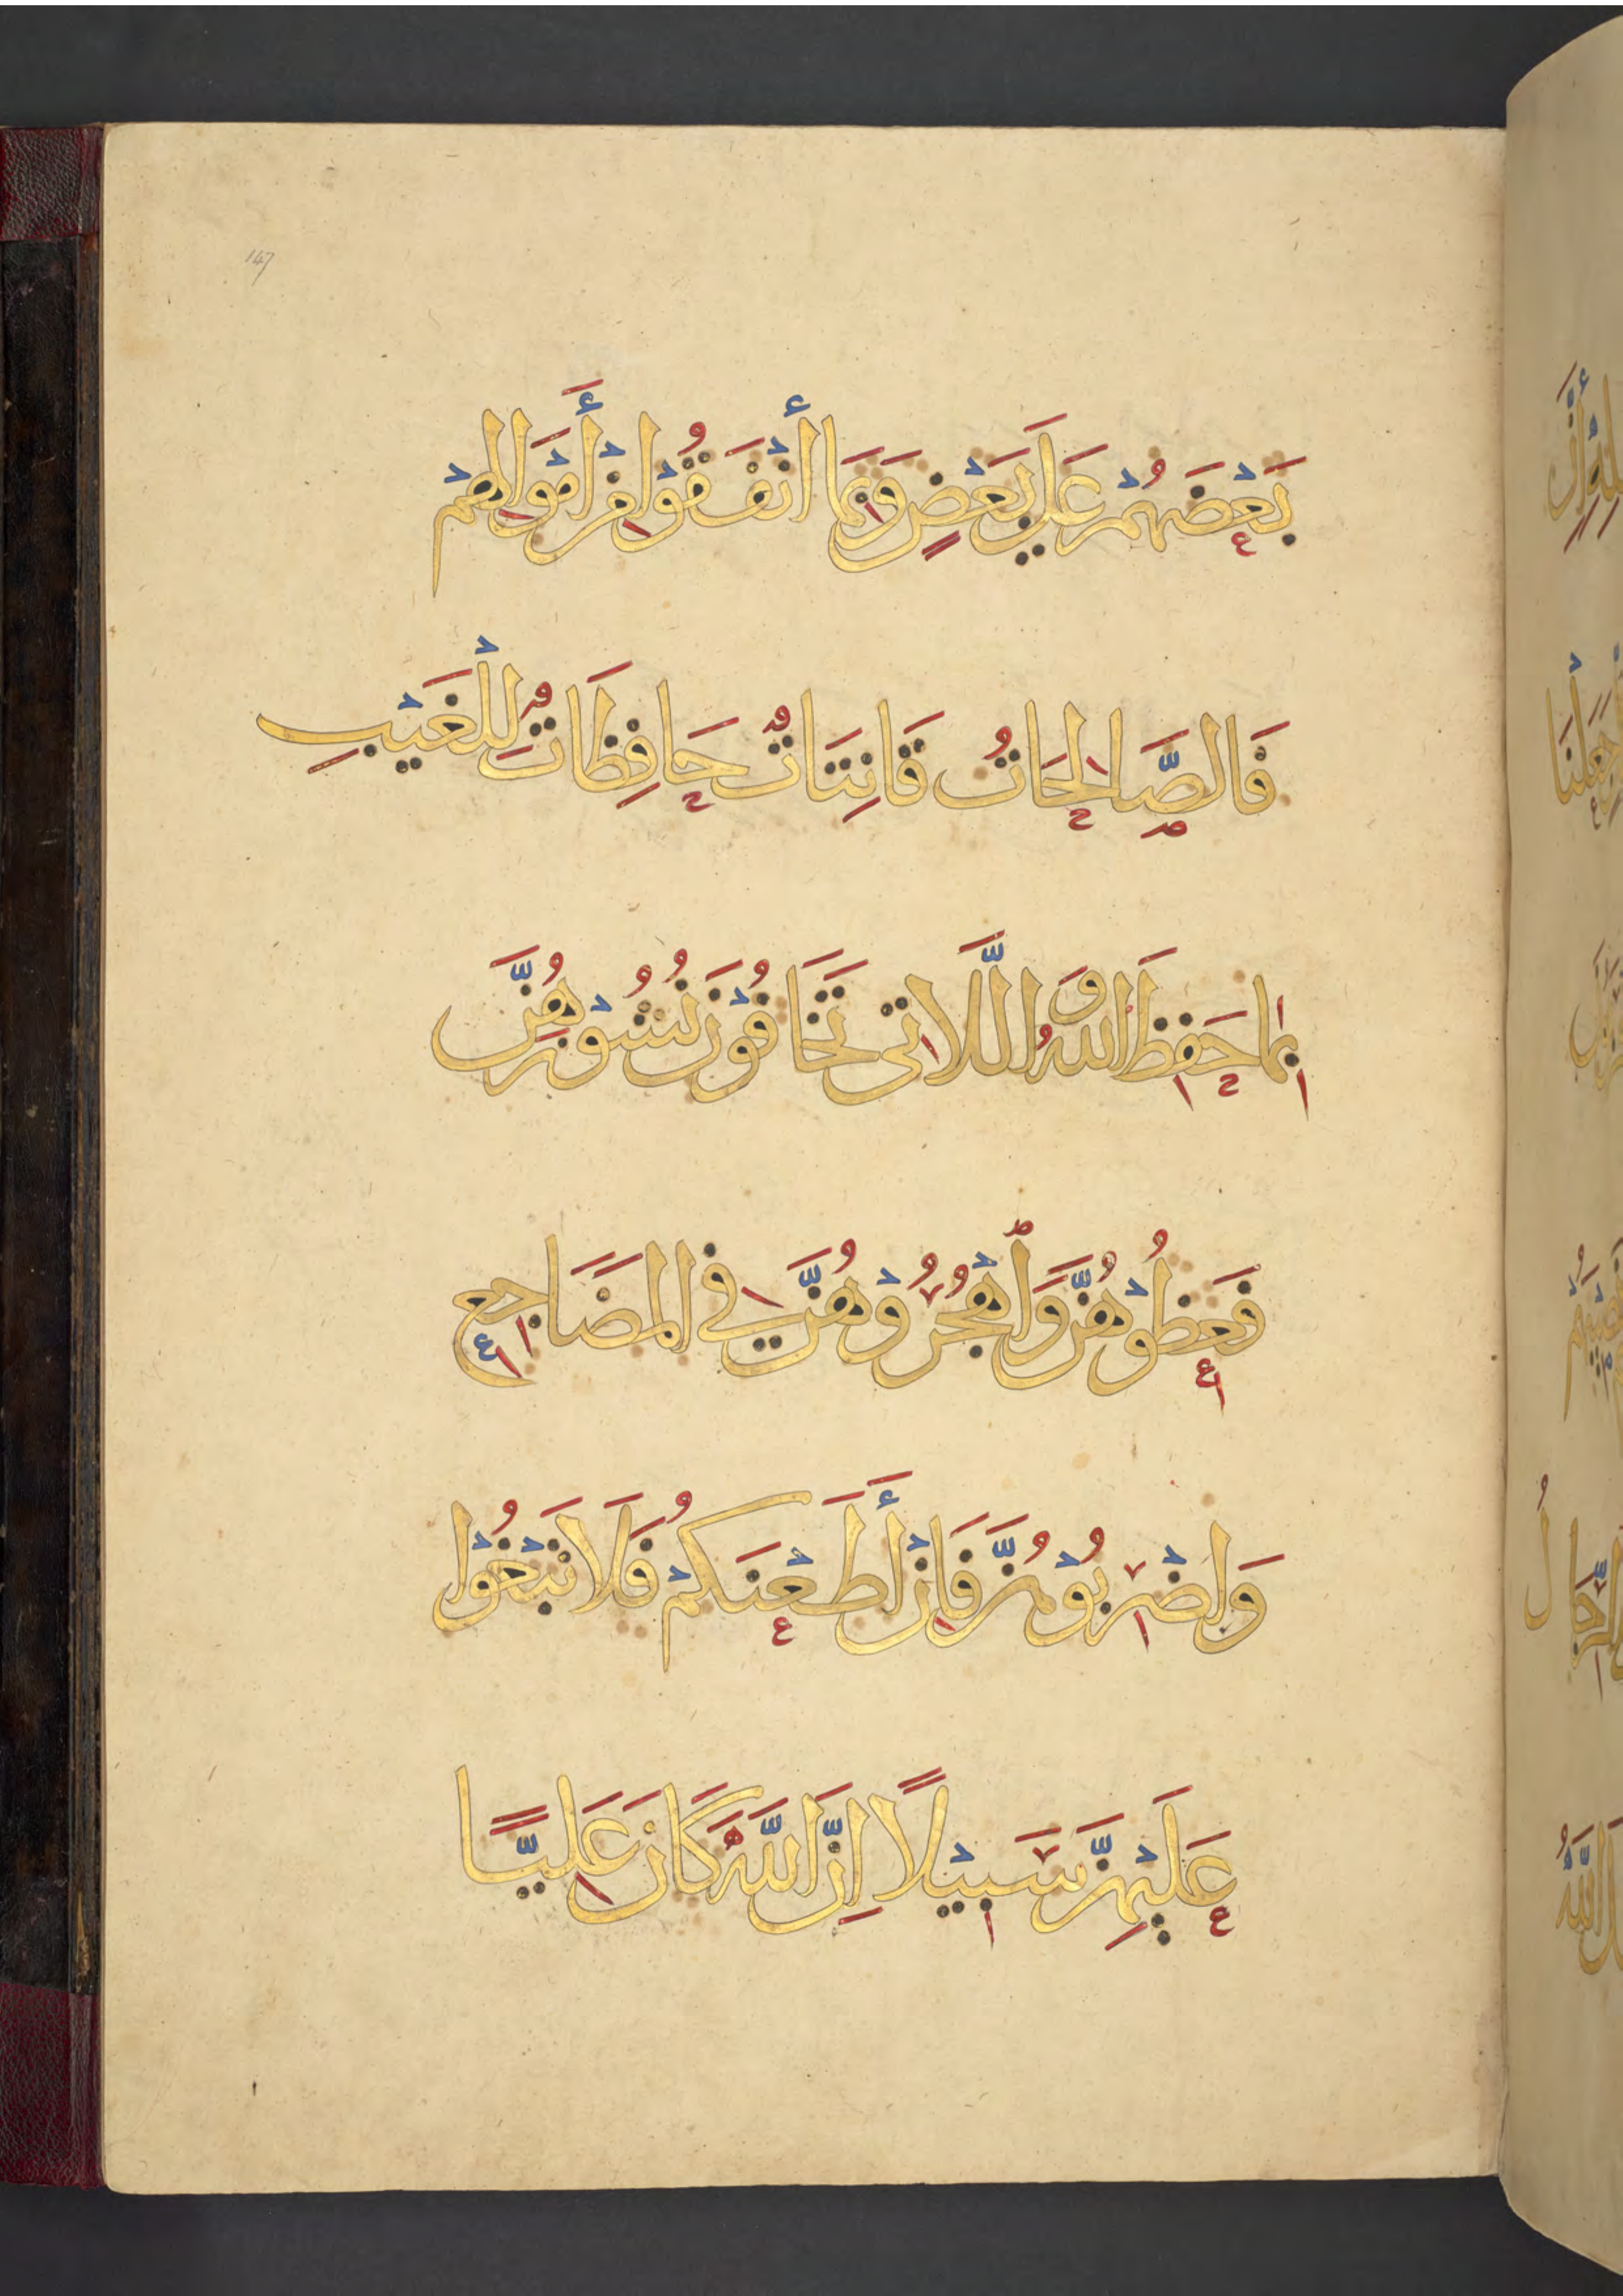 147
بَعْضَهُمْ عَلَى بَعْضٍ وَبِمَا أَنْفَقُوْا مِنْ أَمْوَالِهِمْ
فَالصَّالِحَاتُ قَانِتَاتٌ حَافِظَاتٌ لِلْغَيْبِ
بِمَا حَفِظَ اللهُ وَاللَّلاتِى تَخَافُوْنَ نُشُوْزَهُنَّ
فَعِظُوْهُنَّ وَاهْجُرُوْهُنَّ فِى الْمَضَاجِعِ
وَاضْرِبُوْهُنَّ فَاِنْ أَطَعْنَكُمْ فَلَا تَبْغُوْا
عَلَيْهِنَّ سَبِيْلًا اِنَّ اللَّهَ كَانَ عَلِيًّا